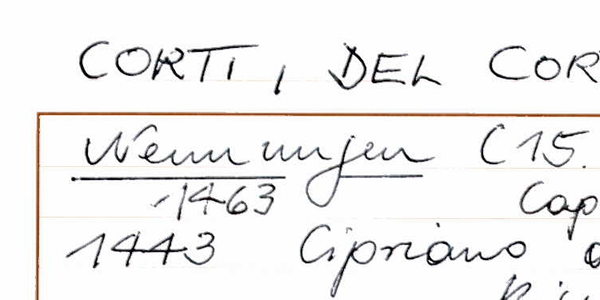 CORTI, DEL COR
Nennungen (15.
-1463 Cap
1443 Cipriano